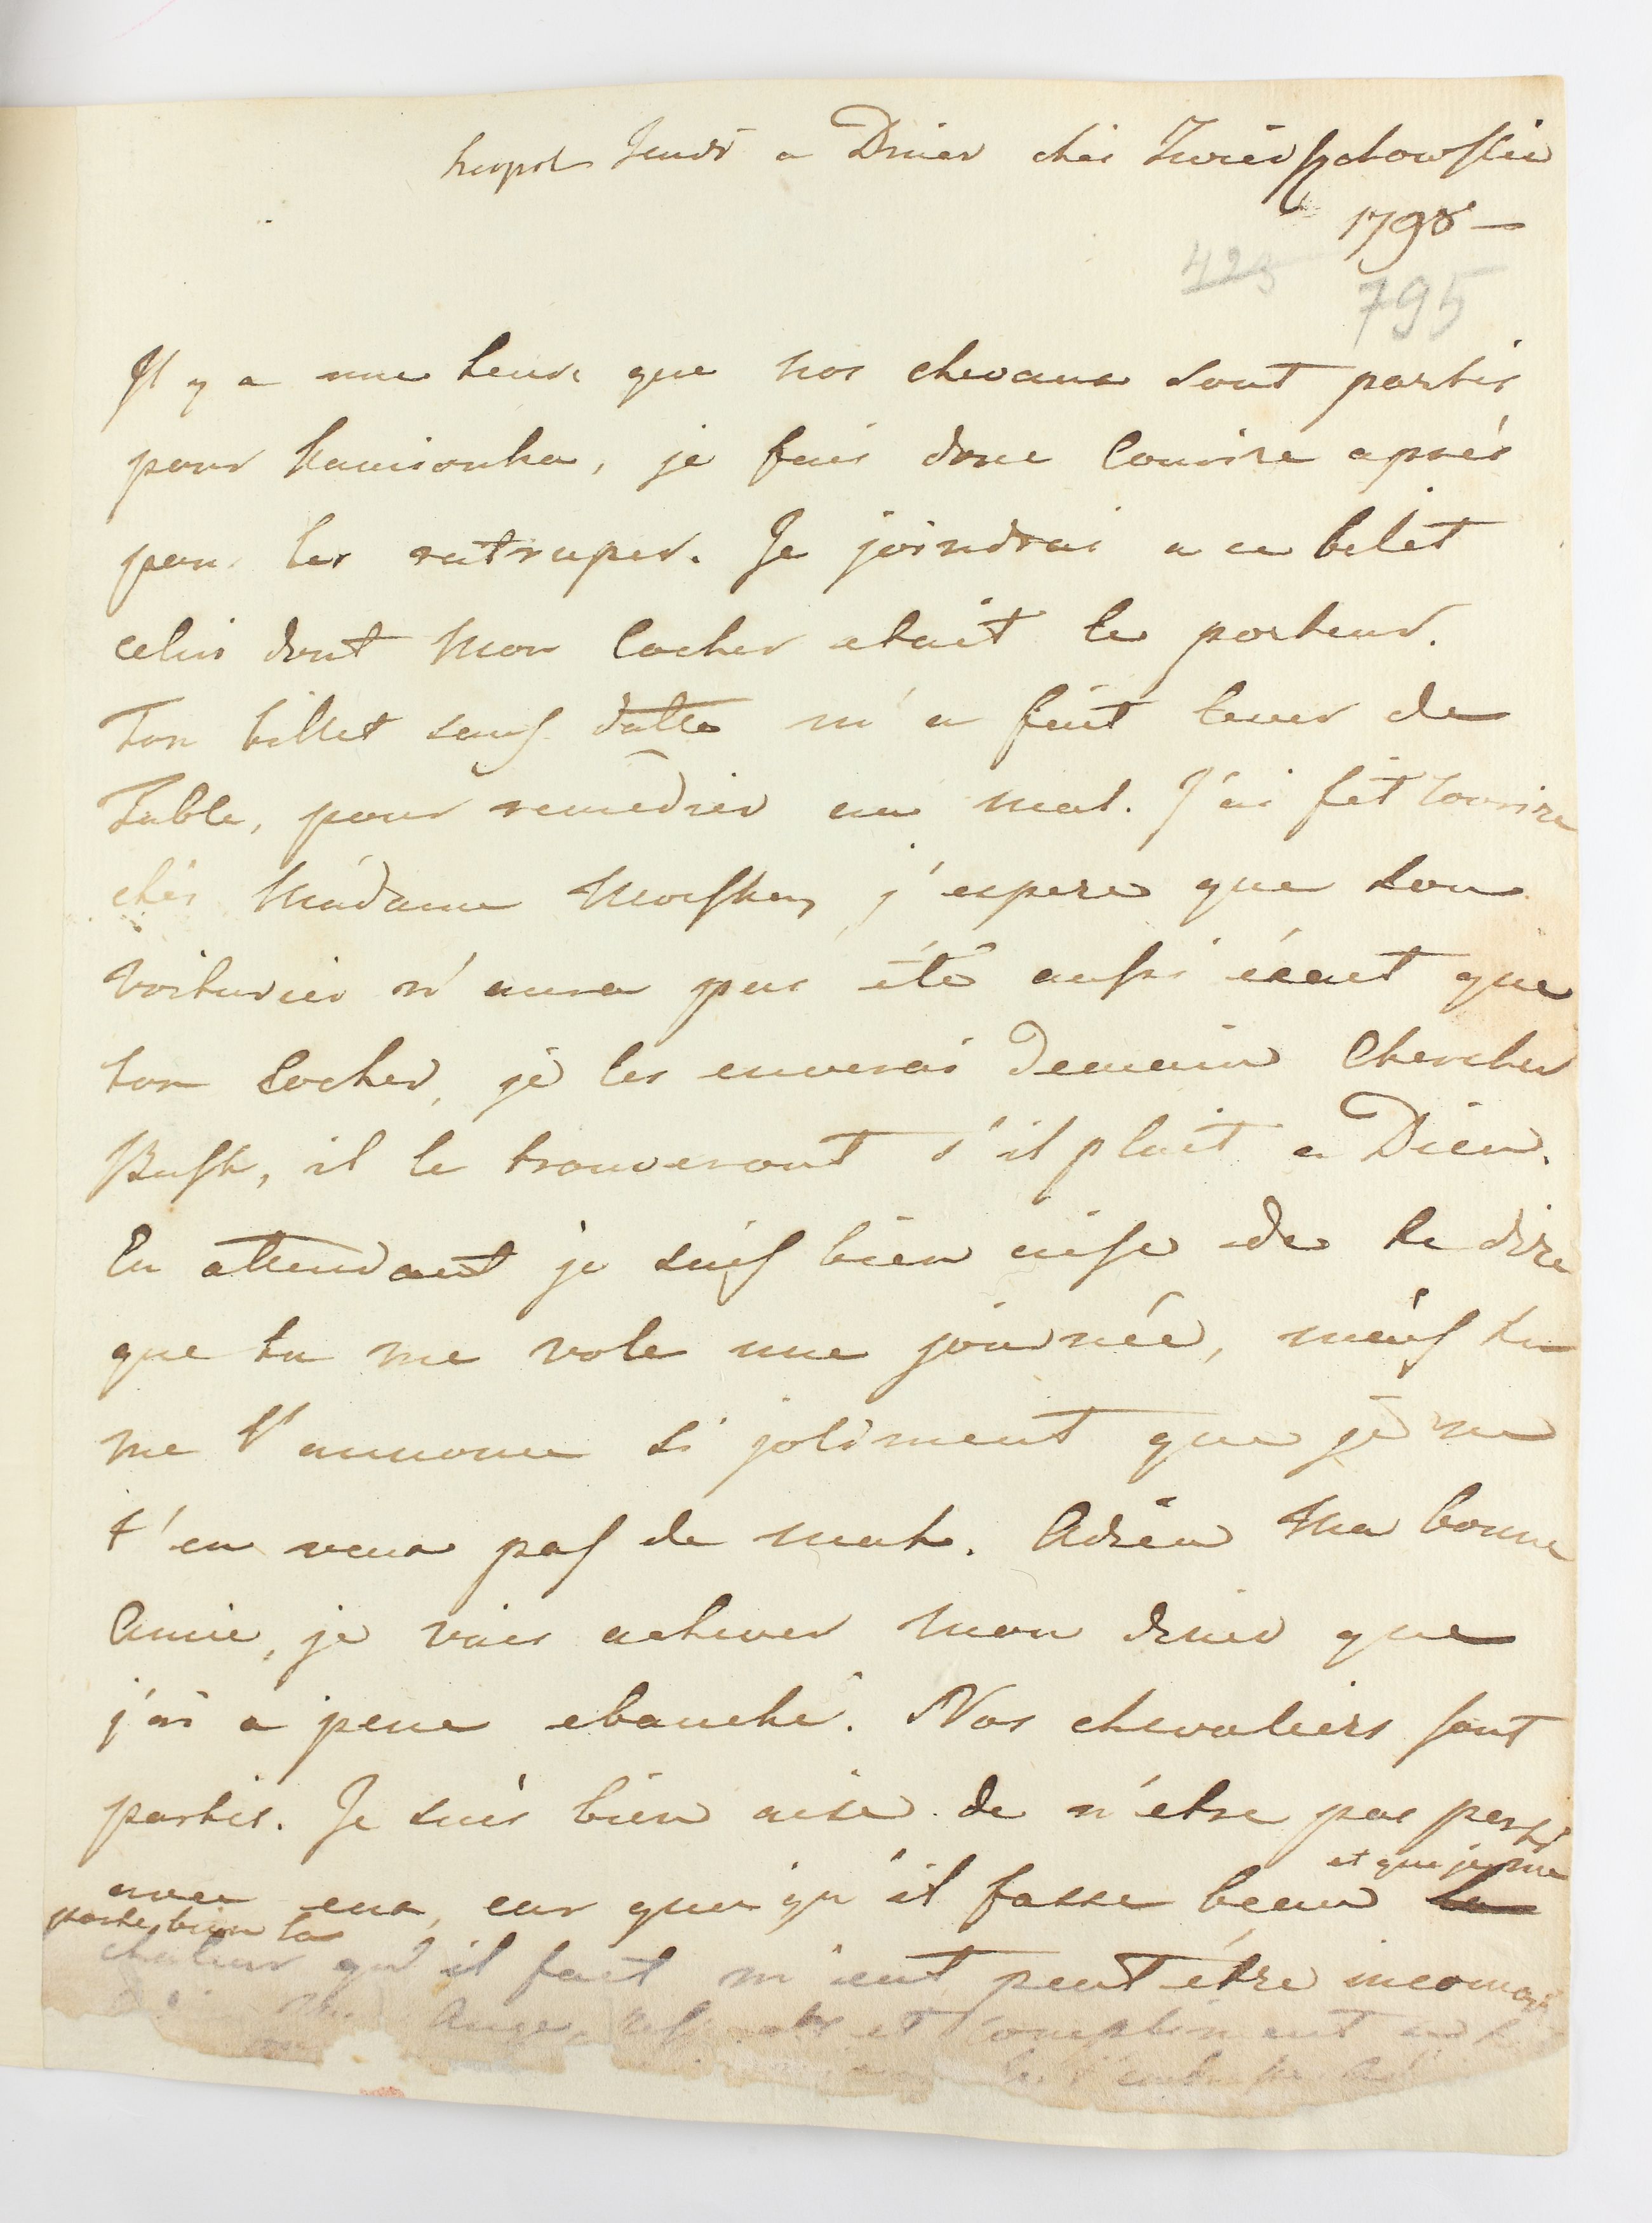 Leopol Jeudi a Diner chès Zwierszchowskie
1798 —
423 795
Il y a une heure que nos chevaux sont partis
pour Kamionka, je fais donc Courire aprés
pour les ratraper. Je joindrai a ce bilet
celui dont Mon Cocher etait le porteur.
Ton billet sans datte m'a fait lever de
Table, pour remédier au mal. J'ai fèt Courire
chés Madame Morska, j'espere que son
Voiturier n'aura pas été aussi éxact que
ton Cocher, je les enverai Demain Chercher
Busk, il le trouveront s'il plait a Dieu.
En attendant je suis bien aise de te dire
que tu me vole une journée, mais tu
me l'annonce si joliment que je ne
t'en veux pas de mal. Adieu Ma bonne
Amie, je vais achever mon diner que
j'ai a peine ebauché. Nos chevaliers sont
partis. Je suis bien aise de n'etre pas parti
avec eux, car quoi qu'il fasse beau et que je me
porte bien la
chaleur qu'il fait m'eut peut étre incomodé
Ange, et Compliment